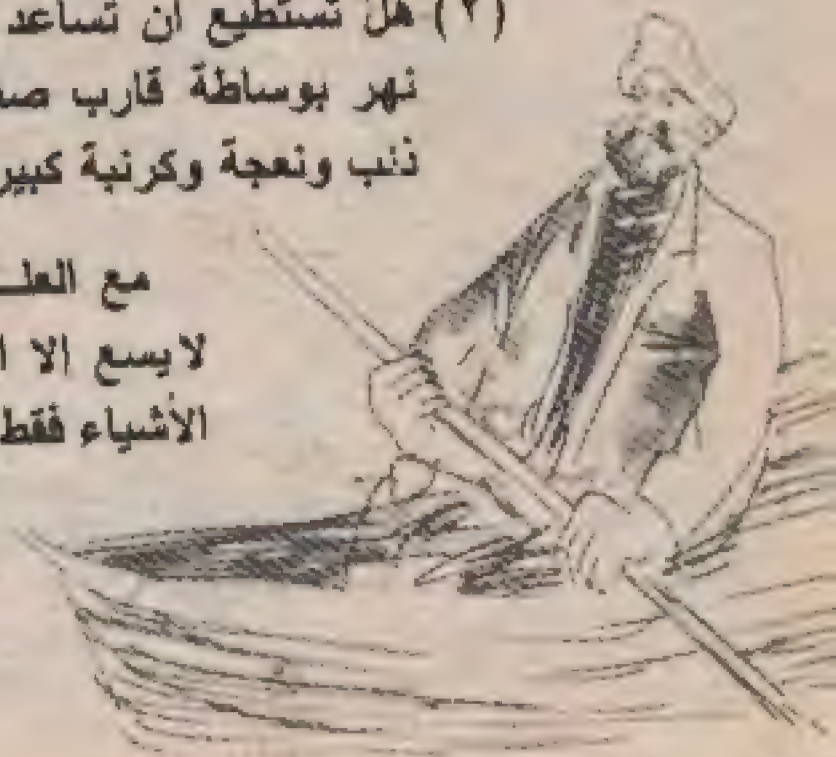 (٢) هل تستطيع ان تساعد
نهر بوساطة قارب
ذئب ونعجة وكرنبة
مع
لايسع الا
الأشياء فقط